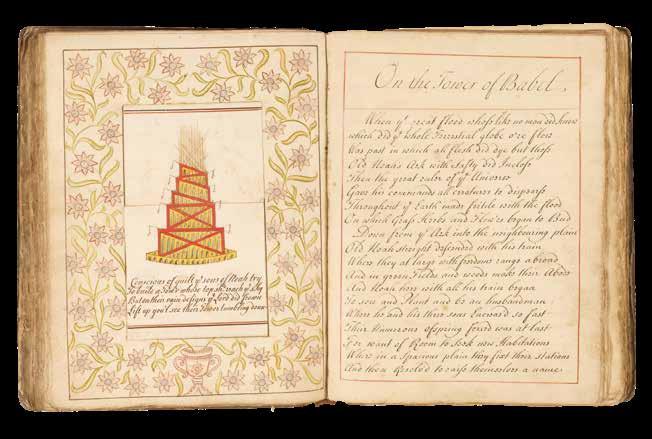 Conscious of guilt yᵉ sons of Noah try
To build a Tower whose top sh: reach yᵉ sky
But on their vain designs yᵉ Lord did frown
Lift up you'l see their Tower tumbling down
On the Tower of Babel.
When yᵉ great flood whose like no man did know
which did yᵉ whole Terrestrial globe o're flow
Was past in which all flesh did dye but those
Old Noah's Ark with safty did Inclose
Then the great ruler of yᵉ Universe
Gave his commands all creatures to disperse
Throughout yᵉ Earth made fertile with the flood
On which Grass Herbs and Flow'rs began to Bud
Down from yᵉ Ark into the neighbouring plain
Did Noah streight descended with his train
Where they at large with freedom range abroad
And in green Fields and woods make their Abode
And Noah here with all his train began
To sow and Plant and be an husbandman
Where he and his three sons Encreas'd so fast
Their Numerous ofspring forced was at last
For want of Room to seek new Habitations
Where in a Spacious plain they fixt their stations
And then Resolv'd to raise themselves a name